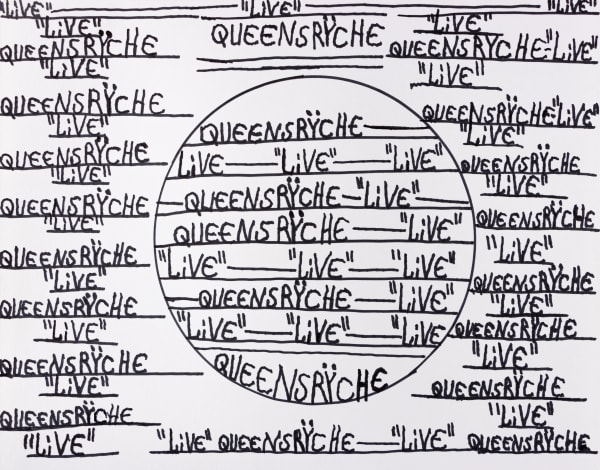 "LiVE" — "LiVE" — "LiVE"
"LiVE"
QUEENSRŸCHE
"LiVE"
QUEENSRŸCHE
"LiVE"
QUEENSRŸCHE
"LiVE"
QUEENSRŸCHE
"LiVE"
QUEENSRŸCHE
"LiVE"
QUEENSRŸCHE
"LiVE"
QUEENSRŸCHE
"LiVE"
QUEENSRŸCHE
"LiVE"
QUEENSRŸCHE
QUEENSRŸCHE —
LiVE — "LiVE" — "LiVE"
— QUEENSRŸCHE — "LiVE" —
QUEENSRŸCHE — "LiVE"
"LiVE" — "LiVE" — "LiVE"
— QUEENSRŸCHE — "LiVE"
"LiVE" — "LiVE" — "LiVE
QUEENSRŸCHE
"LiVE"
QUEENSRŸCHE "LiVE"
"LiVE"
QUEENSRŸCHE "LiVE"
"LiVE"
QUEENSRŸCHE
"LiVE"
QUEENSRŸCHE
"LiVE"
QUEENSRŸCHE
"LiVE"
QUEENSRŸCHE
"LiVE"
QUEENSRŸCHE
"LiVE"
"LiVE" QUEENSRŸCHE — "LiVE" QUEENSRŸCHE